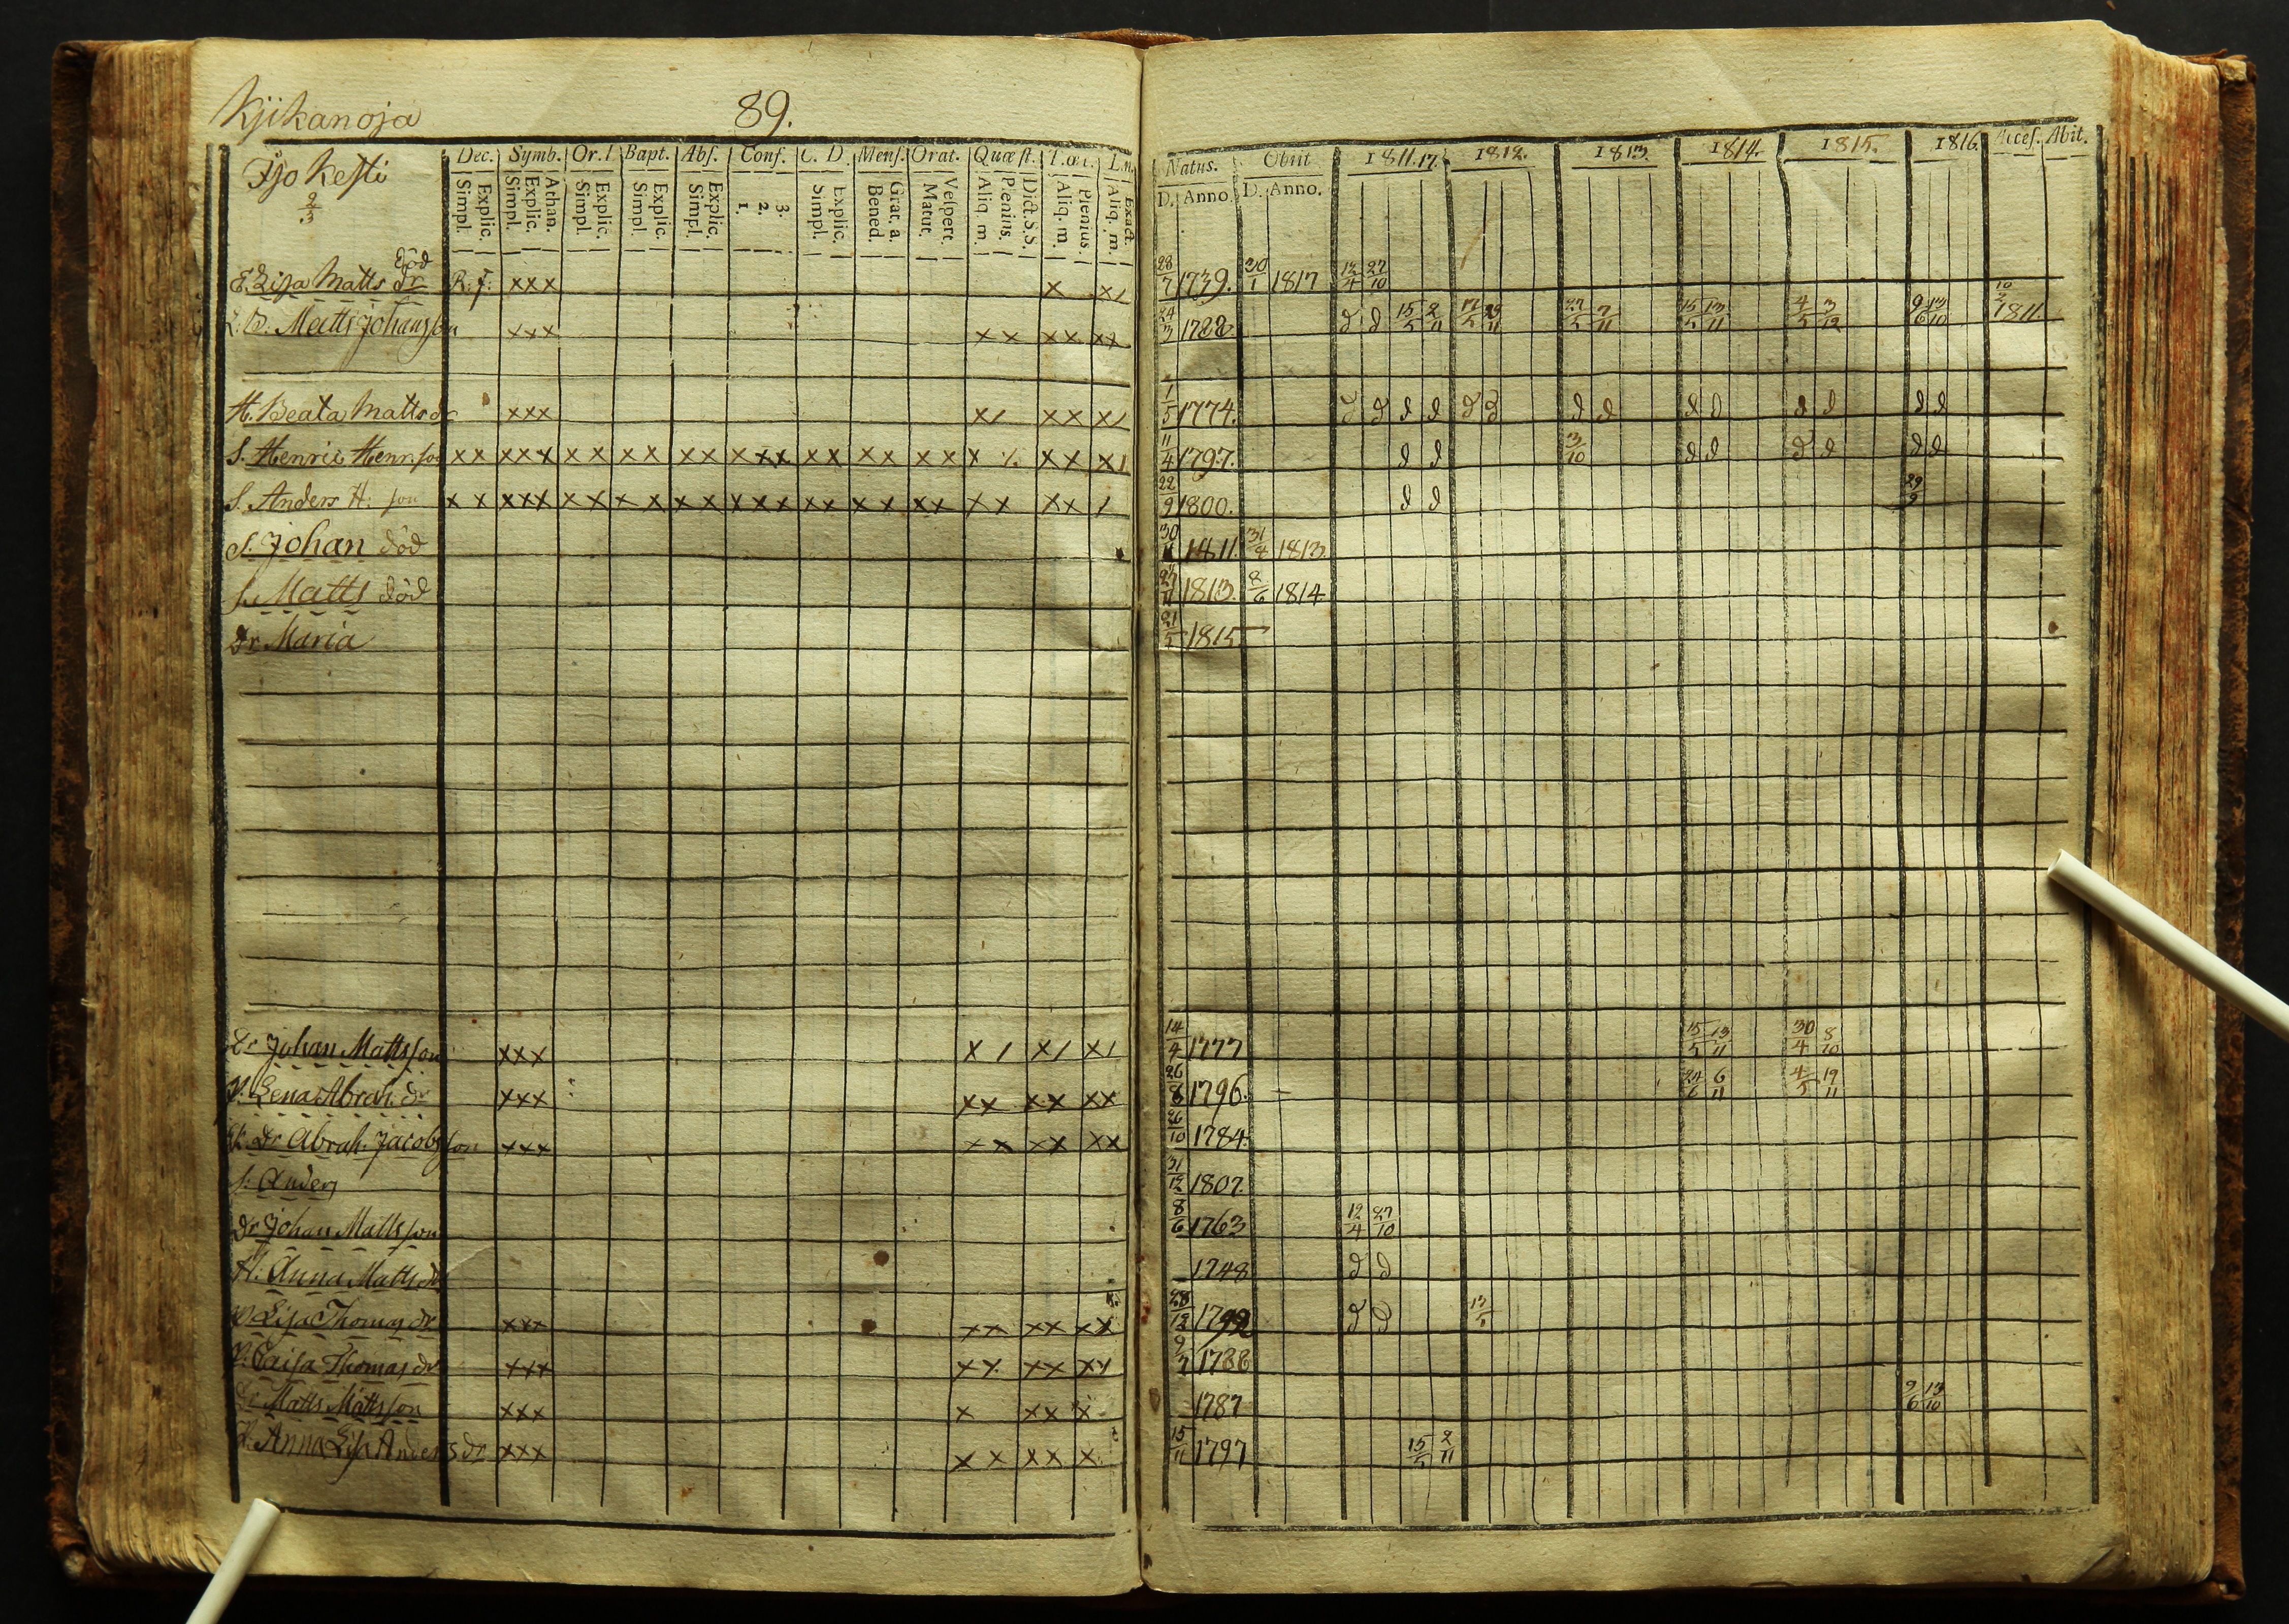 Kjikanoja 89.
Isokesti
2/3
Dec. Symb. Or. Bapt. Abs. Conf. C. D. Mens. Orat. Quæst.
Explic. Simpl. Athan. Explic. Simpl. Explic. Simpl. Explic. Simpl. Explic. Simpl. 3. 2. 1. Explic. Simpl. Grat. a. Bened. Vespert. Matut. Dict. S.S. Plenius. Aliq. m. Plenius. Aliq. m. Exact. Aliq. m.
Natus. Obiit 1811.17. 1812. 1813. 1814. 1815. 1816. Acces. Abit.
D. Anno D. Anno.
död
E. Lisa Matts dr R: f: xxx x x/ 28/7 1739. 30/1 1817 12/4 27/10
B. Matts Johansson xxx xx xx xx 24/3 d d 15/5 2/11 15/5 13/11 4/5 3/12 9/6 13/10 1811
H. Beata Matts dr xxx x/ xx x/ 1/5 1774. d d d d d d d d d d d d d d
S. Henric Henr. son xx xxx xx xx xx xxx xx xx xx x xx x/ 11/4 1797. d d 3/10 d d d d d d
S. Anders H. son xx xxx xx xx xx xxx xx xx xx xx xx / 22/9 1800. d d 29/9
S. Johan död 30 31 1813
S. Matts död 1813. 8/6 1814
dr Maria 21/5 1815
Johan Mattsson xxx x/ x/ x/ 14/4 1777 15/5 13/11 30/4 8/10
P. Lena Abrah. dr xxx xx xx xx 26/8 1796. 24/6 6/11 4/5 19/11
dr Abrah. Jacobsson xxx xx xx xx 26/10 1784.
S. Anders 31/12 1807.
dr Johan Mattsson 8/6 1763 12/4 27/10
H. Anna Matts dr 1748 d d
P. Lisa Thomas dr xxx xx xx xx 28/12 d d
P. Caisa Thomas dr xxx xx xx xx 9/7 1788
dr Matts Mattsson xxx x xx x 1787 9/6 13/10
P. Anna Lisa Anders dr xxx xx xx x 15/11 1797 15/5 2/11